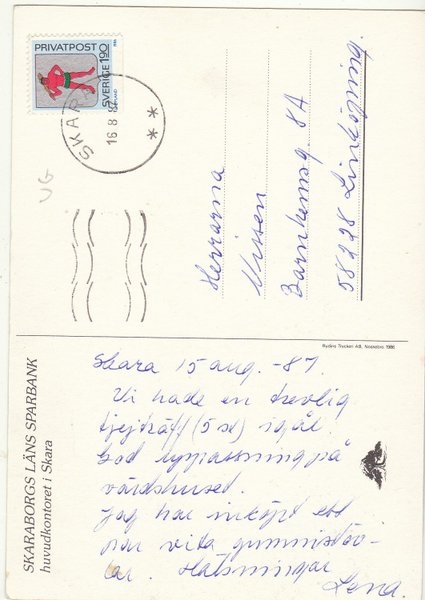 PRIVATPOST
SVERIGE 1.90
SKARA
16 8 87
UG
Herrarna
Nissen
Barnhemsg. 8A
582 28 Linköping.
Rydins Tryckeri AB, Nossebro 1986
SKARABORGS LÄNS SPARBANK
huvudkontoret i Skara
Skara 15 aug. -87.
Vi hade en trevlig
tjejträff (5 st) igår.
God uppassning på
värdshuset.
Jag har inköpt ett
par vita gummistöv-
lar. Hälsningar
Lena.